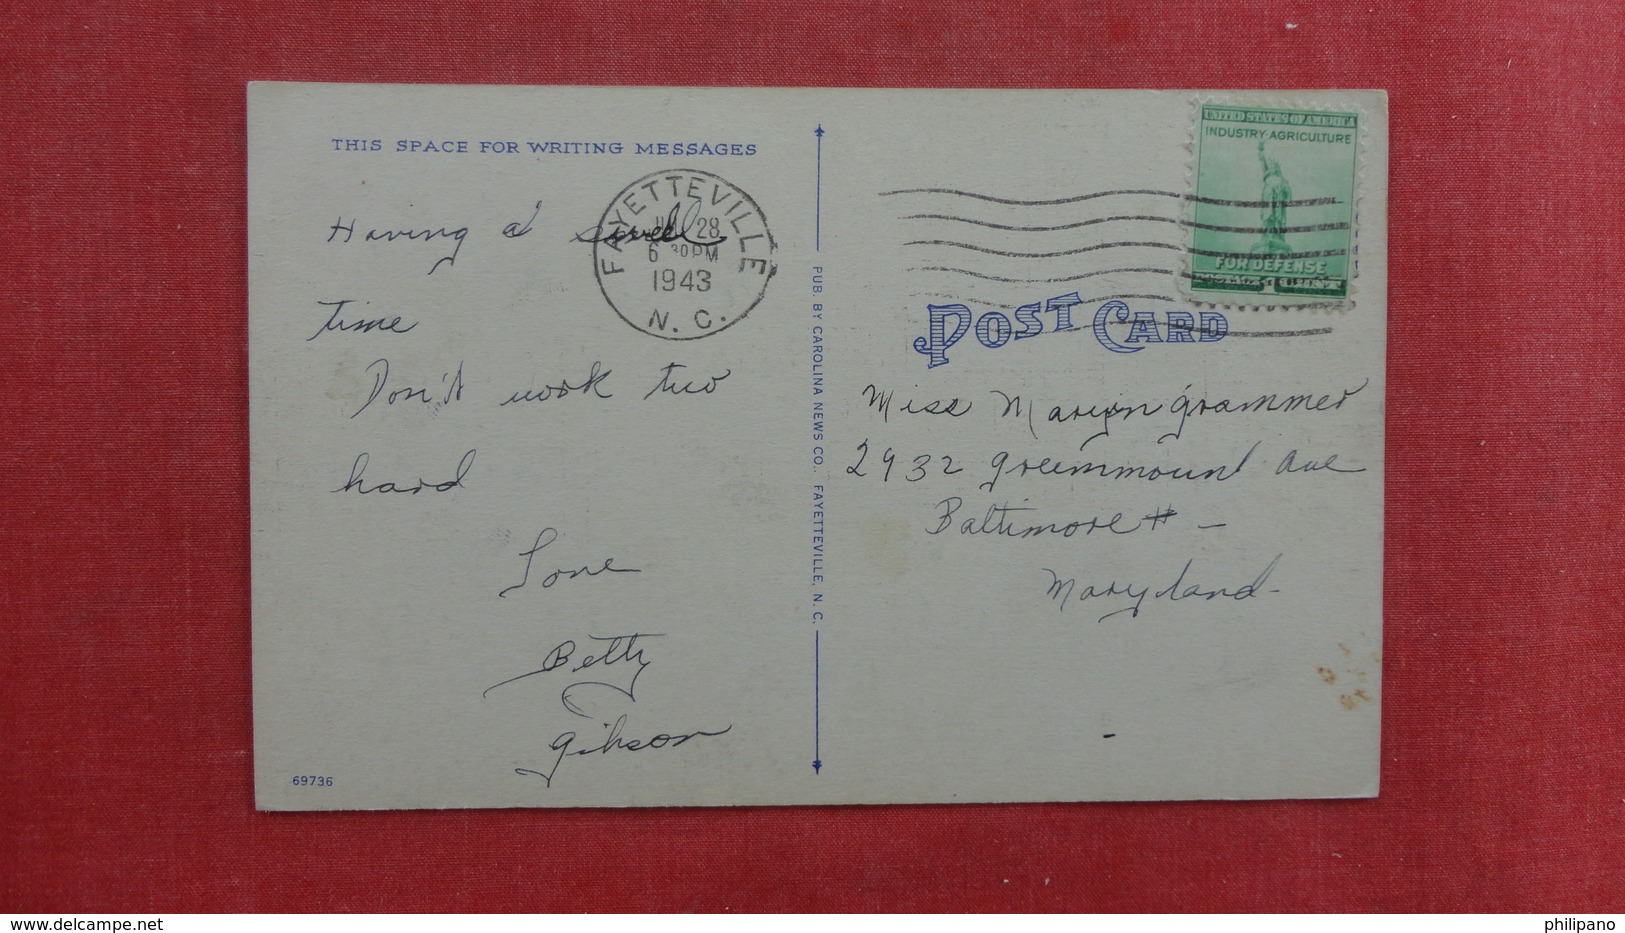 THIS SPACE FOR WRITING MESSAGES
Having a swell
time
Don't work two
hard
Love
Betty
Gibson
69736
FAYETTEVILLE
28
6 30 PM
1943
N. C.
PUB. BY CAROLINA NEWS CO., FAYETTEVILLE, N. C.
UNITED STATES OF AMERICA
INDUSTRY·AGRICULTURE
FOR DEFENSE
POST CARD
Miss Maryn Grammer
2932 Greenmount Ave
Baltimore # –
Maryland-
delcampe.net
philipano